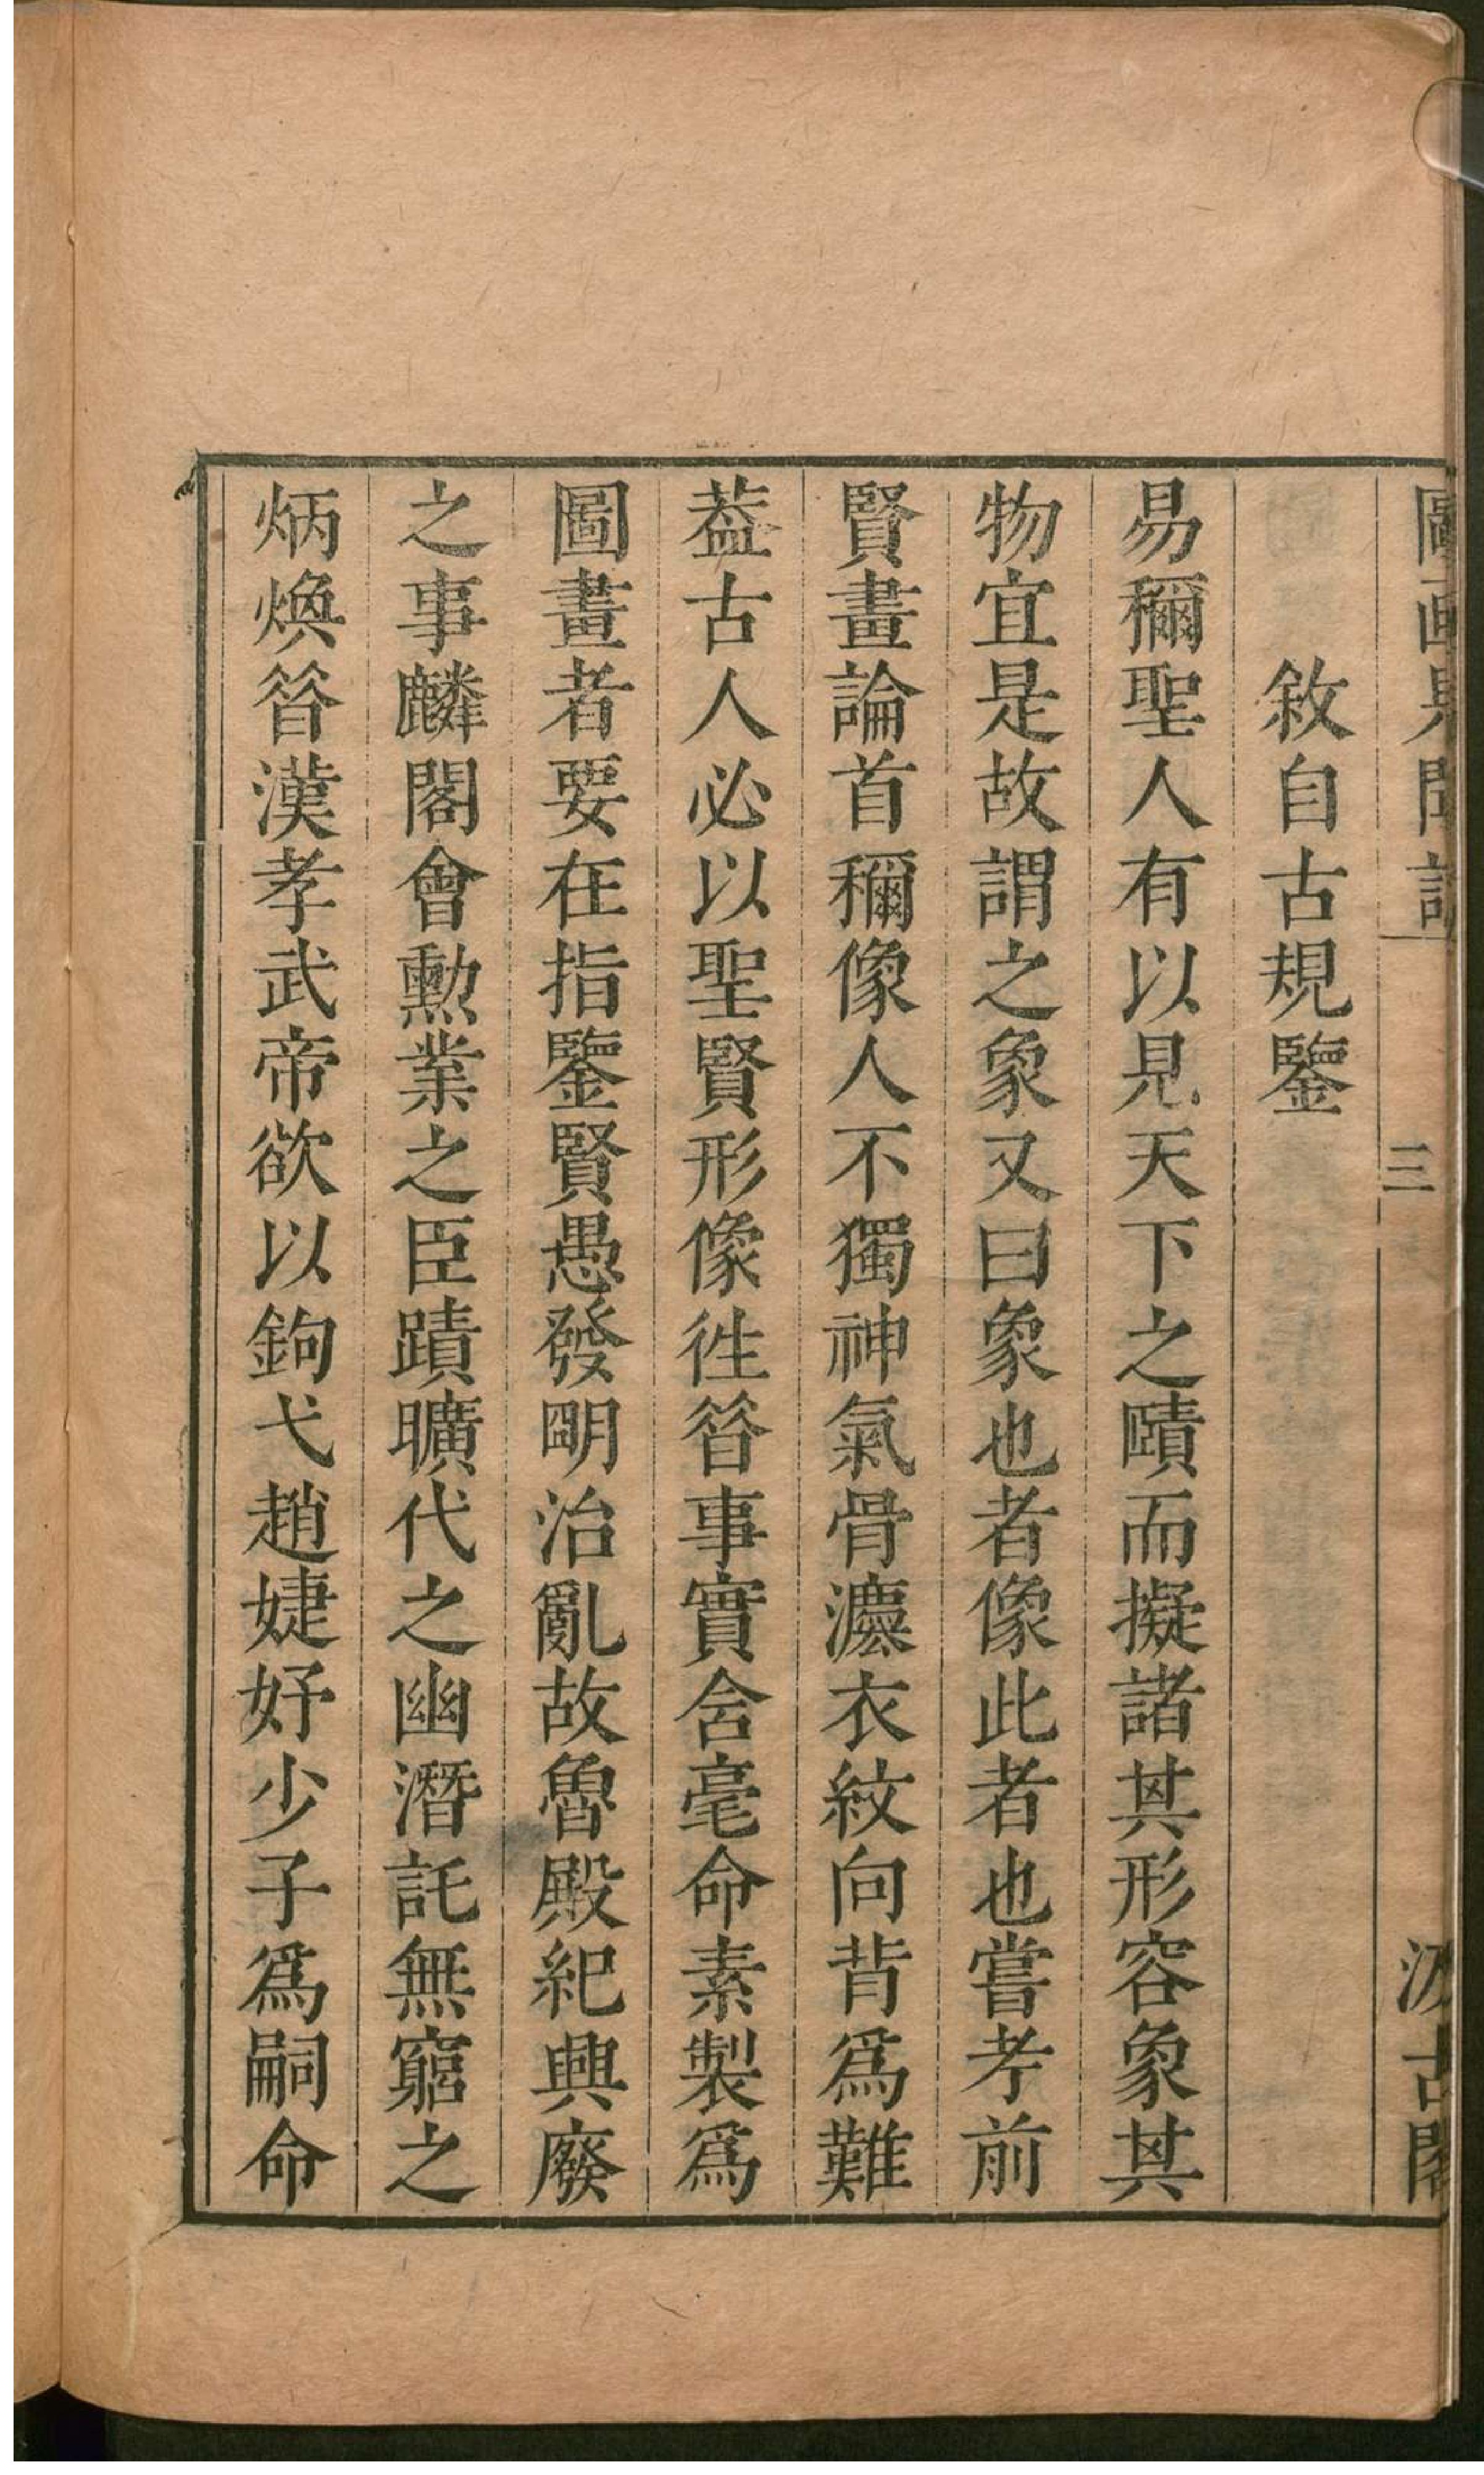 圖画見聞誌 三 汲古閣
敘自古規鑒
易稱聖人有以見天下之賾而擬諸其形容象其
物宜是故謂之象又曰象也者像此者也嘗考前
賢畫論首稱像人不獨神氣骨灋衣紋向背爲難
葢古人必以聖賢形像徃昝事實含毫命素製爲
圖畫者要在指鑒賢愚發朙治亂故魯殿紀興廢
之事麟閣會勲業之臣蹟曠代之幽潛託無窮之
炳煥昝漢孝武帝欲以鉤弋趙婕妤少子爲嗣命